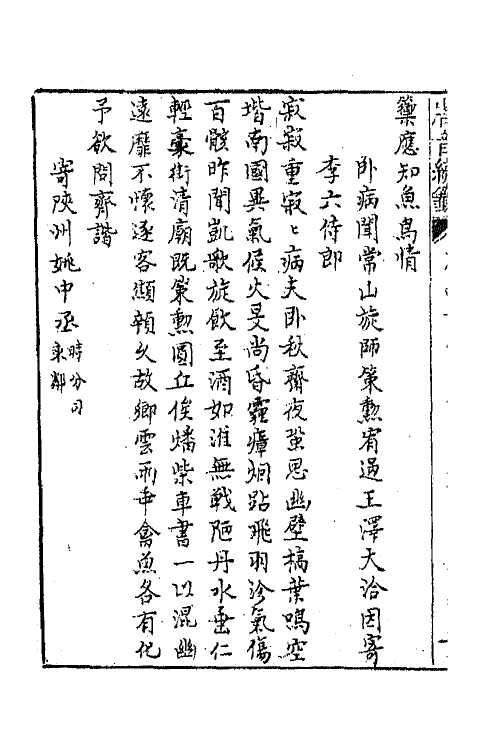 籞應知魚鳥情
卧病聞常山旋師策勲宥過王澤大洽因寄
李六侍郎
寂寂重寂〻病夫卧秋齋夜蛩思幽壁槁葉鳴空
堦南國異氣候火旻尚昏霾瘴烟跕飛羽沴氣傷
百骸昨聞凱歌旋飲至酒如淮無戰陋丹水垂仁
輕藁街清廟既策勲圓丘俟燔柴車書一以混幽
遠靡不懷逐客顦顇久故鄉雲雨乖禽魚各有化
予欲問齊諧
寄陜州姚中丞 時分司東都